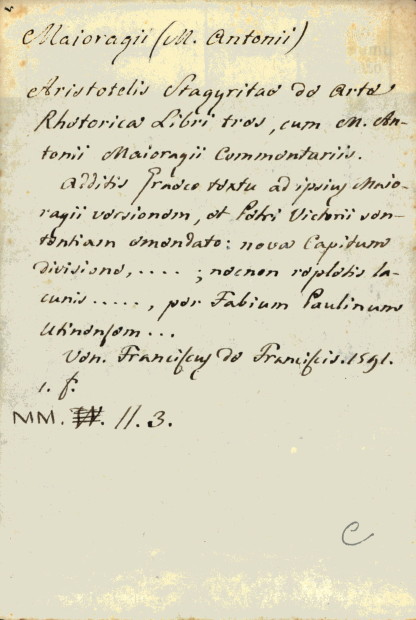 Maioragii (M. Antonii)
Aristotelis Stagyritae de Arte
Rhetorica Libri tres, cum M. An-
tonii Maioragii Commentariis.
Additis Graeco textu ad ipsius Maio-
ragii versionem, et Petri Victorii sen-
tentiam emendato: nova Capitum
divisione, ....; necnon repletis la-
cunis ....., per Fabium Paulinum
Utinensem...
Ven. Franciscus de Franciscis. 1591.
1. f.
MM. II. 3.
C